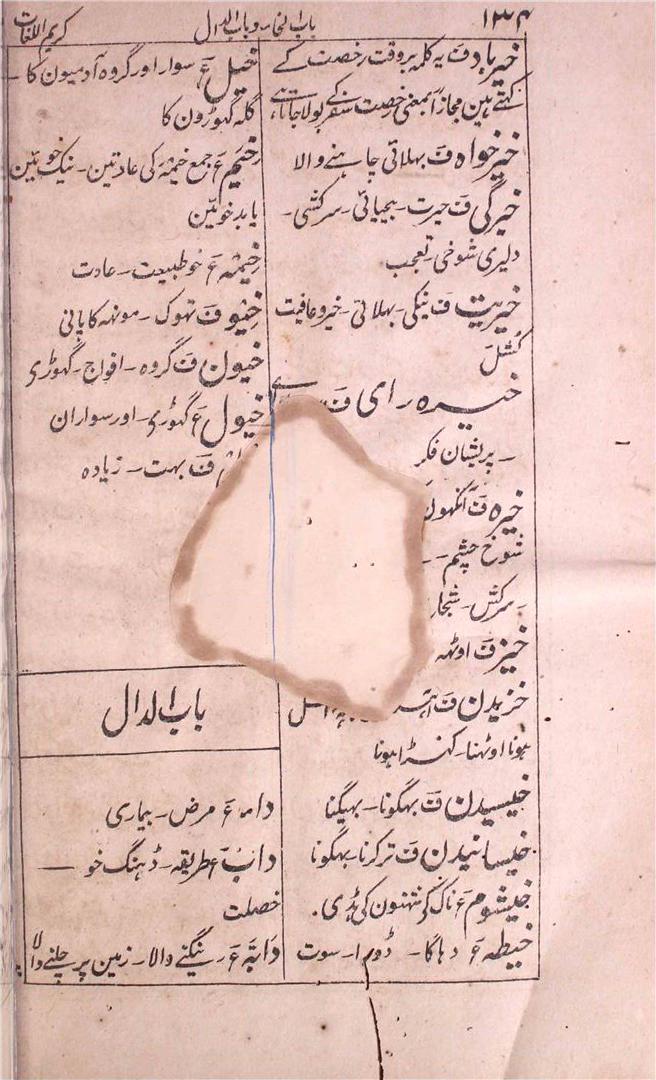 ۱۳۴
باب الخاء و باب الدال
کریم اللغات
خیرباد ف یہ کلمہ بروقت رخصت کے
کہتے ہین مجازاً بمعنی رخصت سفر کے بولا جاتا ہے
خیرخواہ ف بہلائی چاہنے والا
خیرگی ف حیرت - بیحیائی - سرکشی -
دلیری شوخی - تعجب
خیریت ف نیکی - بہلائی - خیروعافیت
کشل
خیرہ رای ف
- پریشان فکر
خیرہ ف آنکھون
شوخ چشم -
- سرکش -
خیز ف اوٹہہ
خزیدن ف
ہونا اوٹہنا - کہڑا ہونا
خیسیدن ف بہگونا - بہیگنا
خیسانیدن ف تر کرنا - بہگونا
خیشوم ع ناک کے نتہنون کی ہڈی.
خیطہ ع دہاگا - ڈورا - سوت
خیل ع سوار اور گروہ آدمیون کا -
گلہ گہوڑون کا
خیم ع جمع خیمہ کی عادتین - نیک خوئین
یا بد خوئین
خیمہ ع خو طبیعت - عادت
خیو ف تہوک - مونہہ کا پانی
خیون ف گروہ - افواج - گہوڑی
خیول ع گہوڑی - اور سواران
ف بہت - زیادہ
باب الدال
داء ع مرض - بیماری
داب ع طریقہ - ڈہنگ خو
خصلت
دابّہ ع رینگنے والا - زمین پر چلنے والا